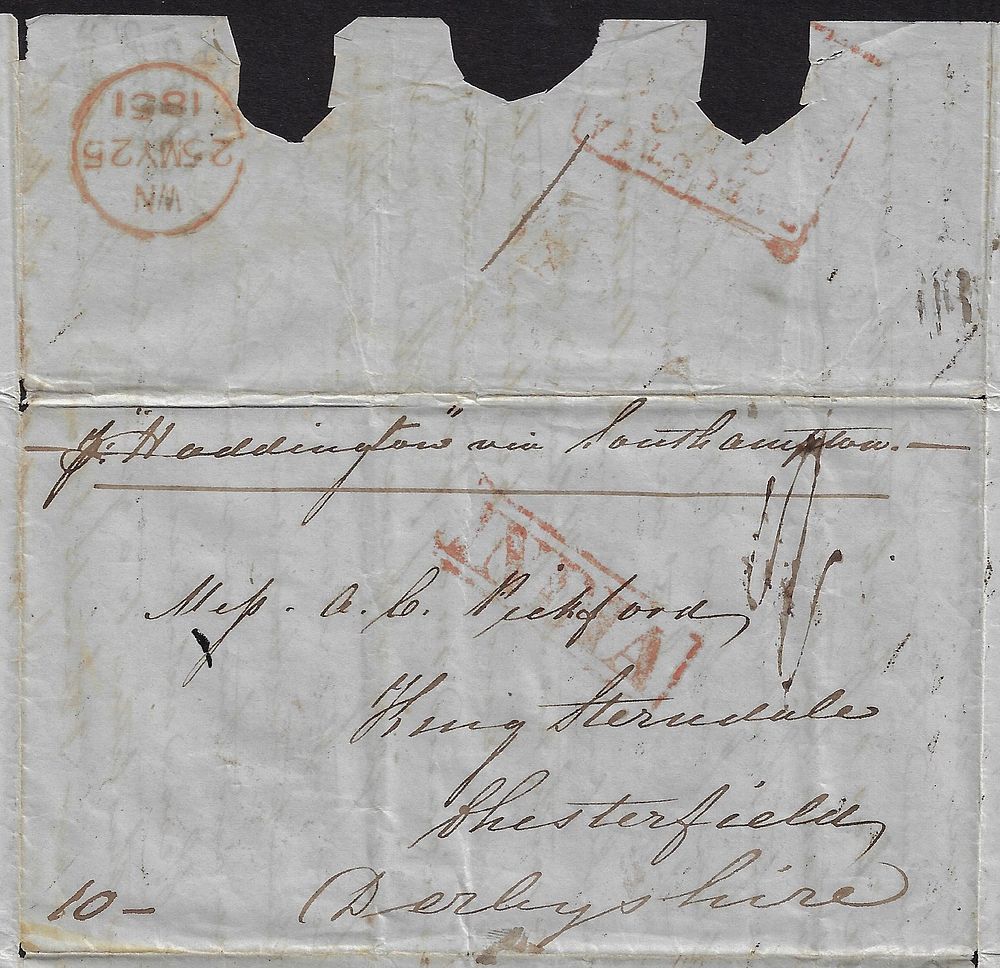 WN
25MY25
1851
p. "Haddington" via Southampton.
INDIA
Miss. A. C. Pickford,
King Sterndale
Chesterfield,
Derbyshire
10